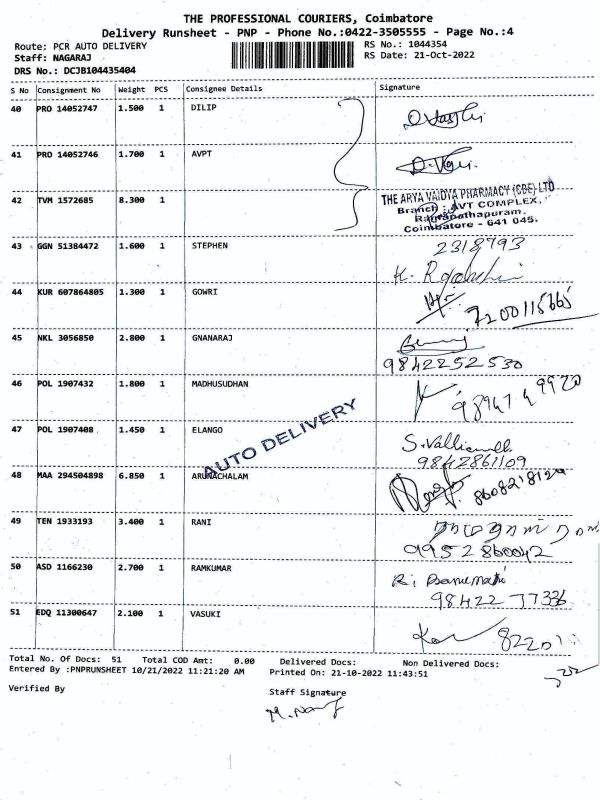 THE PROFESSIONAL COURIERS, Coimbatore
Delivery Runsheet - PNP - Phone No.:0422-3505555 - Page No.:4
Route: PCR AUTO DELIVERY RS No.: 1044354
Staff: NAGARAJ RS Date: 21-Oct-2022
DRS No.: DCJB104435404
S No Consignment No Weight PCS Consignee Details Signature
40 PRO 14052747 1.500 1 DILIP
41 PRO 14052746 1.700 1 AVPT
42 TVM 1572685 8.300 1
THE ARYA VAIDYA PHARMACY (CBE) LTD
Branch : AVT COMPLEX,
Ramanathapuram,
Coimbatore - 641 045.
43 GGN 51384472 1.600 1 STEPHEN 2318793
44 KUR 607864805 1.300 1 GOWRI
45 NKL 3056850 2.800 1 GNANARAJ
9842252530
46 POL 1907432 1.800 1 MADHUSUDHAN
AUTO DELIVERY
47 POL 1907408 1.450 1 ELANGO
9842861109
48 MAA 294504898 6.850 1 ARUNACHALAM
49 TEN 1933193 3.400 1 RANI
9952860042
50 ASD 1166230 2.700 1 RAMKUMAR
98422 77336
51 EDQ 11300647 2.100 1 VASUKI
Total No. Of Docs: 51 Total COD Amt: 0.00 Delivered Docs: Non Delivered Docs:
Entered By :PNPRUNSHEET 10/21/2022 11:21:20 AM Printed On: 21-10-2022 11:43:51
Verified By Staff Signature